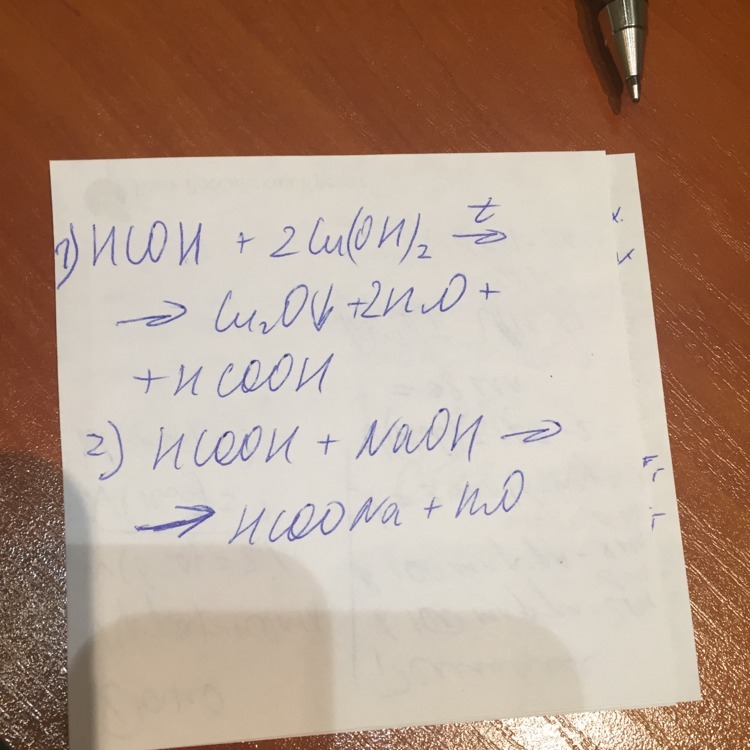 1) HCOH + 2Cu(OH)₂ t→
→ Cu₂O↓ + 2H₂O +
+ HCOOH
2) HCOOH + NaOH →
→ HCOONa + H₂O